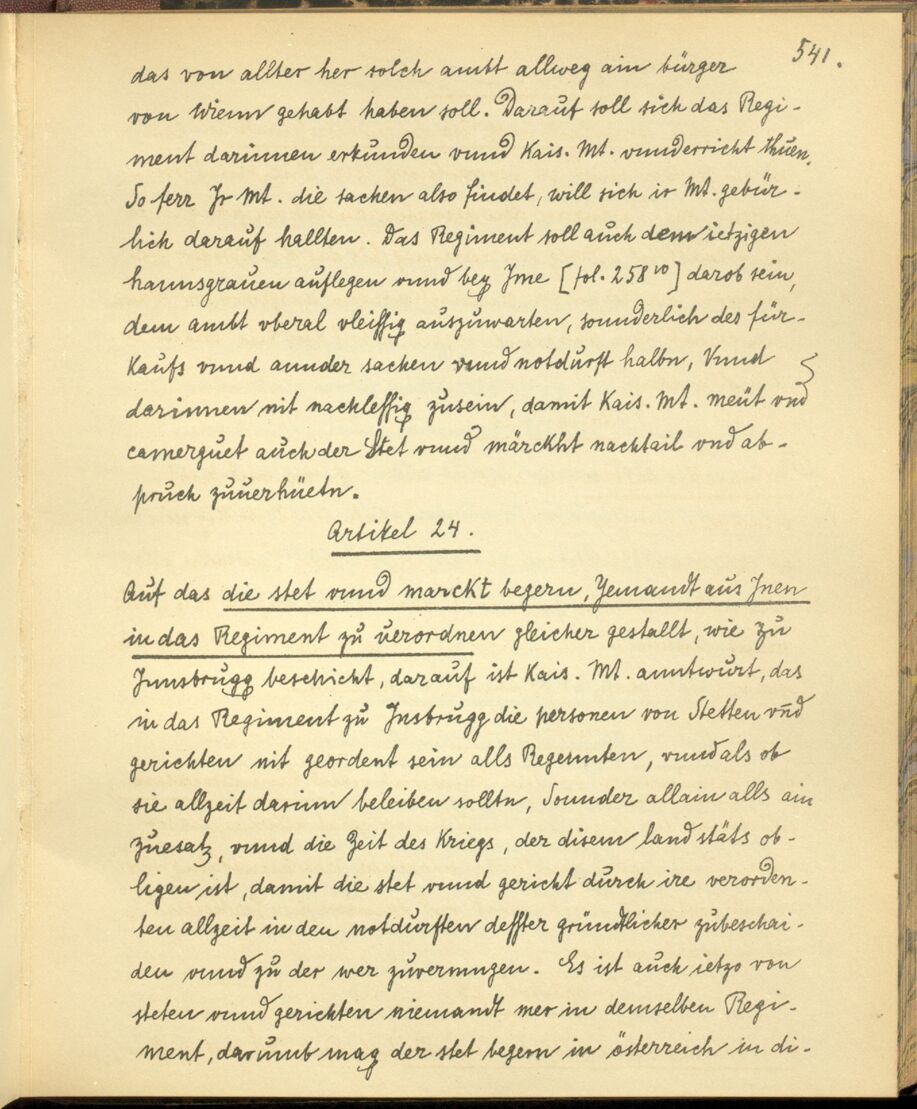 541.
das von allter her solch ambt allweg ain bürger
von Wienn gehabt haben soll. Darauf soll sich das Regi-
ment darinnen erkunden vnnd Kais. Mt. vnnderricht thuen.
So ferr Jr Mt. die sachen also findet, will sich ir Mt. gebür-
lich darauf hallten. Das Regiment soll auch dem ietzigen
hannsgrauen auflegen vnnd bey Jme [fol. 258 vo] darob sein,
dem ambt vberal vleissig auszuwarten, sonnderlich des für-
Kaufs vnnd annder sachen vnnd notdurft halbn, Vnnd
darinnen nit nachlessig zusein, damit Kais. Mt. meüt vnd
camerguet auch der Stet vnnd märckht nachtail vnd ab-
pruch zuuerhüetn.
Artikel 24.
Auf das die stet vnnd marckt begern, Yemandt aus Jnen
in das Regiment zu verordnen gleicher gestallt, wie zu
Jnnsbrugg beschicht, darauf ist Kais. Mt. anntwurt, das
in das Regiment zu Jnsbrugg die personen von Stetten vn̄d
gerichten nit geordent sein alls Regennten, vnnd als ob
sie allzeit darinn beleiben solltn, Sonnder allain alls ain
zuesatz, vnnd die Zeit des Kriegs, der disem land stäts ob-
ligen ist, damit die stet vnnd gericht durch ire verorden-
ten allzeit in den notdurften desster gründtlicher zubeschai-
den vnnd zu der wer zuvermugen. Es ist auch ietzo von
steten vnnd gerichten niemandt mer in demselben Regi-
ment, darumb mag der stet begern in österreich in di-